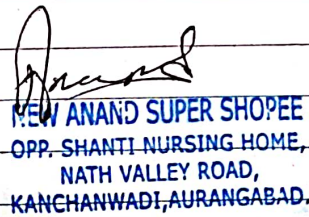 Anand
NEW ANAND SUPER SHOPEE
OPP. SHANTI NURSING HOME,
NATH VALLEY ROAD,
KANCHANWADI,AURANGABAD.